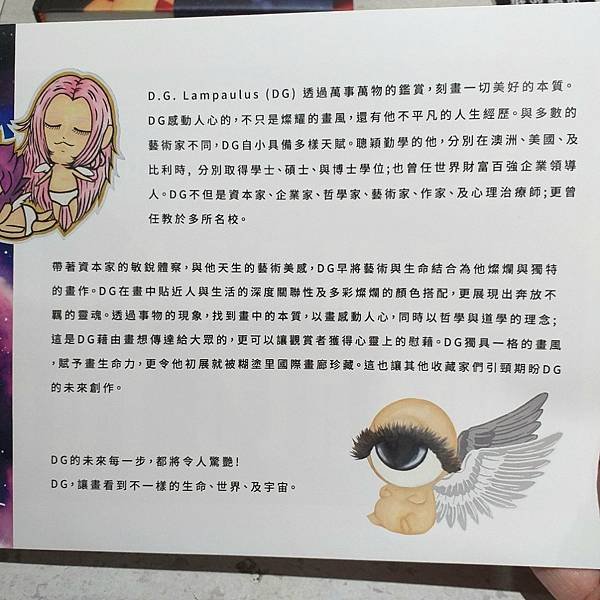 D.G. Lampaulus (DG) 透過萬事萬物的鑑賞,刻畫一切美好的本質。
DG感動人心的,不只是燦耀的畫風,還有他不平凡的人生經歷。與多數的
藝術家不同,DG自小具備多樣天賦。聰穎勤學的他,分別在澳洲、美國、及
比利時, 分別取得學士、碩士、與博士學位;也曾任世界財富百強企業領導
人。DG不但是資本家、企業家、哲學家、藝術家、作家、及心理治療師;更曾
任教於多所名校。
帶著資本家的敏銳體察,與他天生的藝術美感,DG早將藝術與生命結合為他燦爛與獨特
的畫作。DG在畫中貼近人與生活的深度關聯性及多彩燦爛的顏色搭配,更展現出奔放不
羈的靈魂。透過事物的現象,找到畫中的本質,以畫感動人心,同時以哲學與道學的理念;
這是DG藉由畫想傳達給大眾的,更可以讓觀賞者獲得心靈上的慰藉。DG獨具一格的畫風
,賦予畫生命力,更令他初展就被糊塗里國際畫廊珍藏。這也讓其他收藏家們引頸期盼DG
的未來創作。
DG的未來每一步,都將令人驚艷!
DG,讓畫看到不一樣的生命、世界、及宇宙。